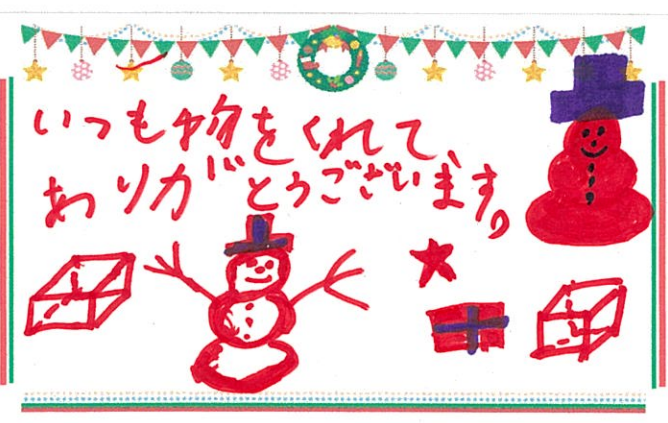 いつも物をくれて
ありがとうございます。